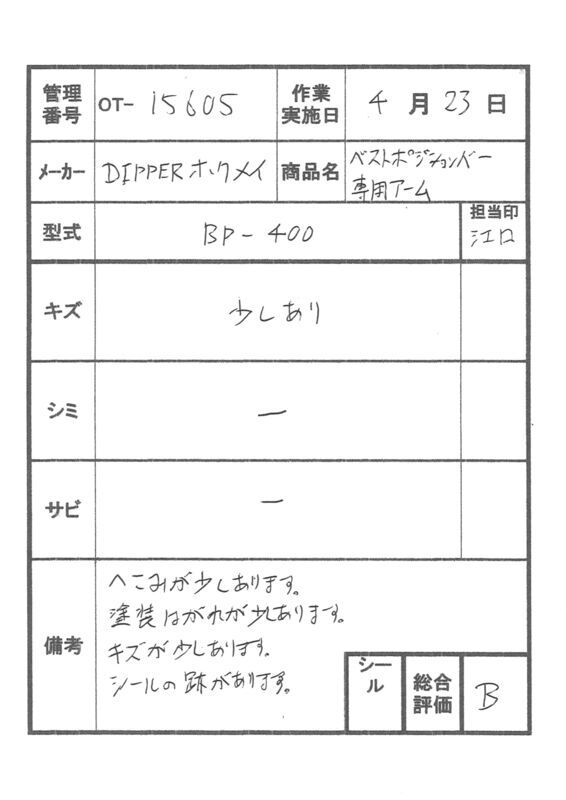 管理番号 OT- 15605 作業実施日 4 月 23 日
メーカー DIPPERホクメイ 商品名 ベストポジションバー
専用アーム
型式 BP-400 担当印
江口
キズ 少しあり
シミ ー
サビ ー
備考
へこみが少しあります。
塗装はがれが少しあります。
キズが少しあります。
シールの跡があります。
シール 総合評価 B